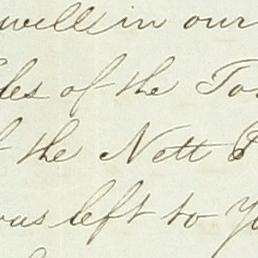 well in our
of the
the Nett
was left to